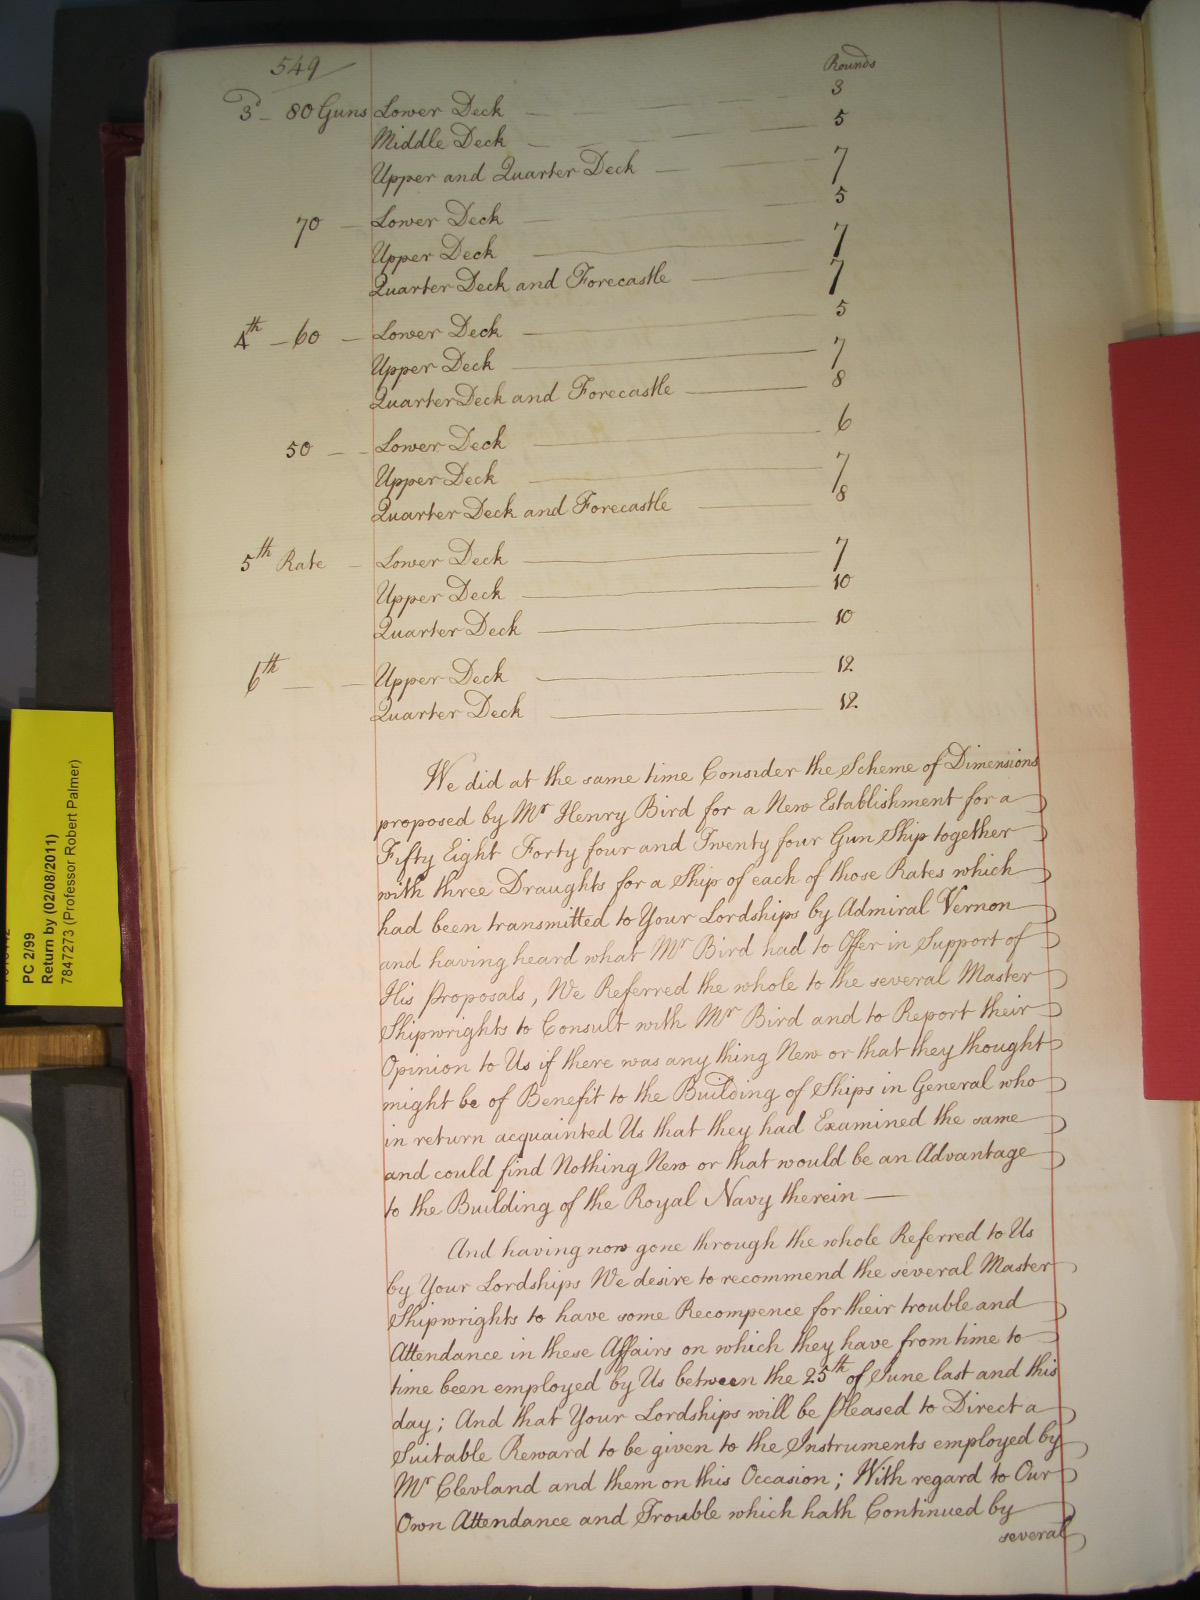 549
Rounds
3d - 80 Guns Lower Deck 3
Middle Deck 5
Upper and Quarter Deck 7
70 - Lower Deck 5
Upper Deck 7
Quarter Deck and Forecastle 7
4th - 60 - Lower Deck 5
Upper Deck 7
Quarter Deck and Forecastle 8
50 - Lower Deck 6
Upper Deck 7
Quarter Deck and Forecastle 8
5th Rate - Lower Deck 7
Upper Deck 10
Quarter Deck 10
6th - Upper Deck 12
Quarter Deck 12
We did at the same time Consider the Scheme of Dimensions
proposed by Mr Henry Bird for a New Establishment for a
Fifty Eight Forty four and Twenty four Gun Ship together
with three Draughts for a Ship of each of those Rates which
had been transmitted to Your Lordships by Admiral Vernon
and having heard what Mr Bird had to Offer in Support of
His Proposals, We Referred the whole to the several Master
Shipwrights to Consult with Mr Bird and to Report their
Opinion to Us if there was any thing New or that they thought
might be of Benefit to the Building of Ships in General who
in return acquainted Us that they had Examined the same
and could find Nothing New or that would be an Advantage
to the Building of the Royal Navy therein —
And having now gone through the whole Referred to Us
by Your Lordships We desire to recommend the several Master
Shipwrights to have some Recompence for their trouble and
Attendance in these Affairs on which they have from time to
time been employed by Us between the 25th of June last and this
day; And that Your Lordships will be pleased to Direct a
Suitable Reward to be given to the Instruments employed by
Mr Clevland and them on this Occasion; With regard to Our
Own Attendance and Trouble which hath Continued by
several
PC 2/99
Return by (02/08/2011)
7847273 (Professor Robert Palmer)